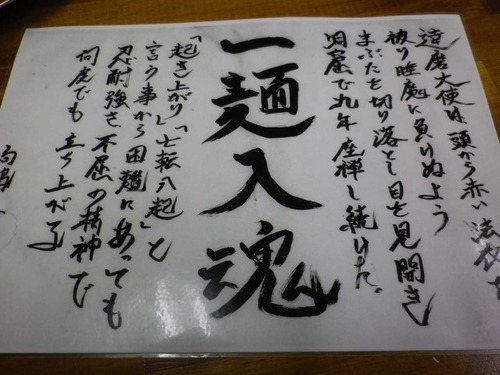 達磨大使は、頭から赤い法衣を
被り睡魔に負けぬよう
まぶたを切り落とし目を見開き
洞窟で九年座禅し続けた。
一麺入魂
「起き上がり」「七転八起」と
言う事から困難にあっても
忍耐強さ、不屈の精神で
何度でも立ち上がる